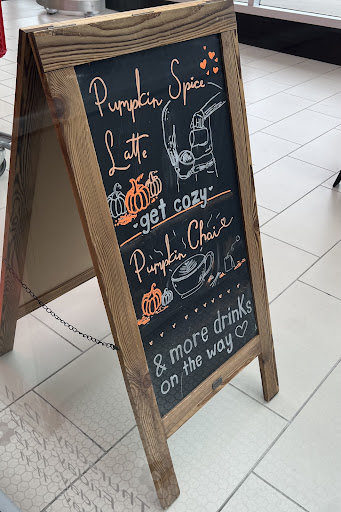 Pumpkin Spice
Latte
get cozy
Pumpkin Chai
& more drinks
on the way